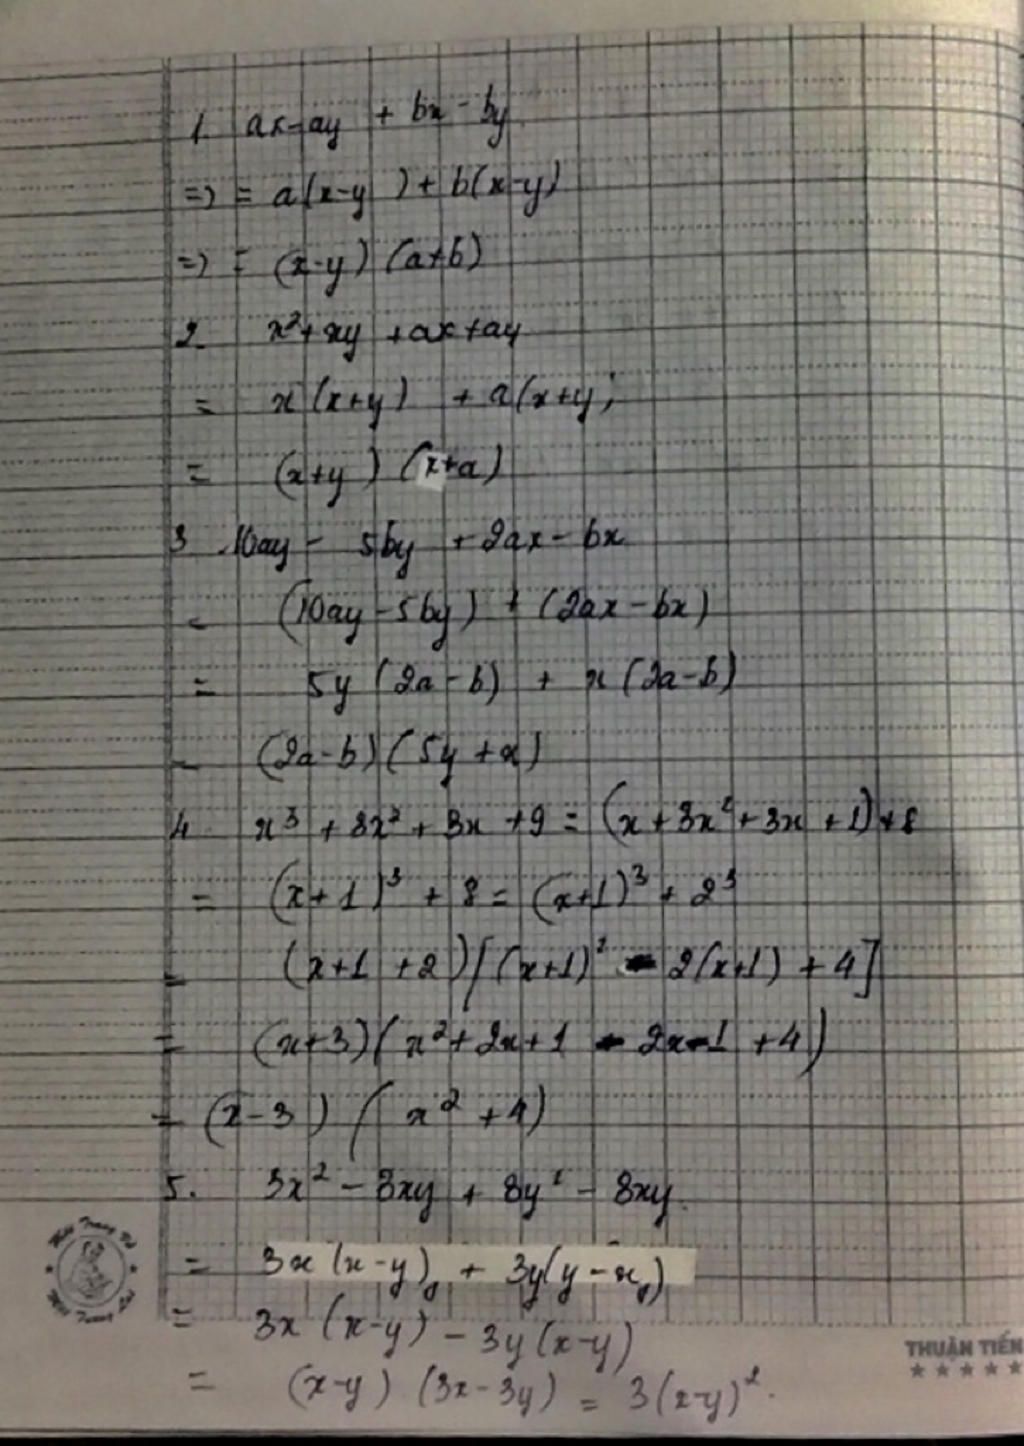 1. ax-ay + bx - by
=> = a(x-y) + b(x-y)
=> = (x-y) (a+b)
2. x²+xy +ax+ay
= x(x+y) + a(x+y)
= (x+y) (x+a)
3. 10ay - 5by + 2ax - bx
= (10ay - 5by) + (2ax - bx)
= 5y (2a - b) + x (2a - b)
= (2a-b) (5y + x)
4. x³ + 3x² + 3x + 9 = (x + 3x² + 3x + 1) + 8
= (x+1)³ + 8 = (x+1)³ + 2³
= (x+1 +2) [(x+1)² - 2(x+1) + 4]
= (x+3) (x² + 2x + 1 - 2x - 1 + 4)
= (x-3) (x² + 4)
5. 3x² - 3xy + 3y² - 3xy.
= 3x (x-y) + 3y(y-x)
= 3x (x-y) - 3y (x-y)
= (x-y) (3x - 3y) = 3(x-y)².
THUẬN TIẾN